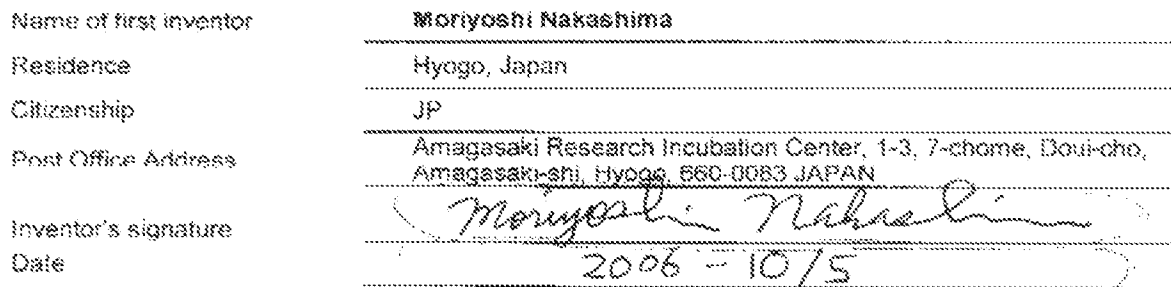 Name of first inventor Moriyoshi Nakashima
Residence Hyogo, Japan
Citizenship JP
Post Office Address Amagasaki Research Incubation Center, 1-3, 7-chome, Doui-cho,
Amagasaki-shi, Hyogo, 660-0083 JAPAN
Inventor's signature Moriyoshi Nakashima
Date 2006 - 10/5